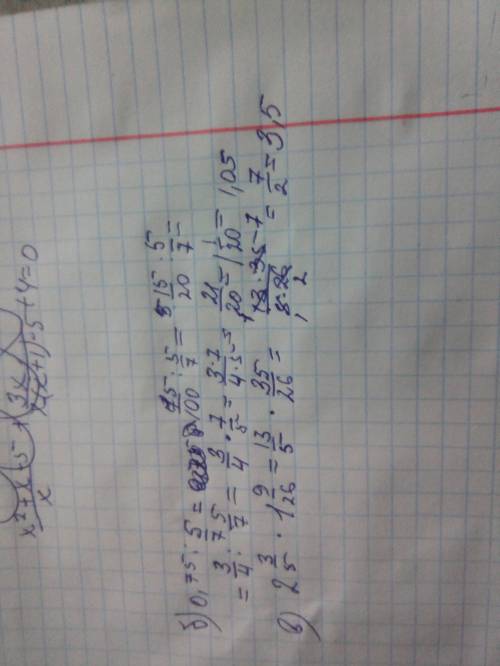 б) 0,75 : 5/7 = 75/100 : 5/7 = 15/20 : 5/7 =
= 3/4 : 5/7 = 3/4 · 7/5 = 3·7/4·5 = 21/20 = 1 1/20 = 1,05
в) 2 3/5 · 1 9/26 = 13/5 · 35/26 = 13·35 7/5·26 1, 2 = 7/2 = 3,5